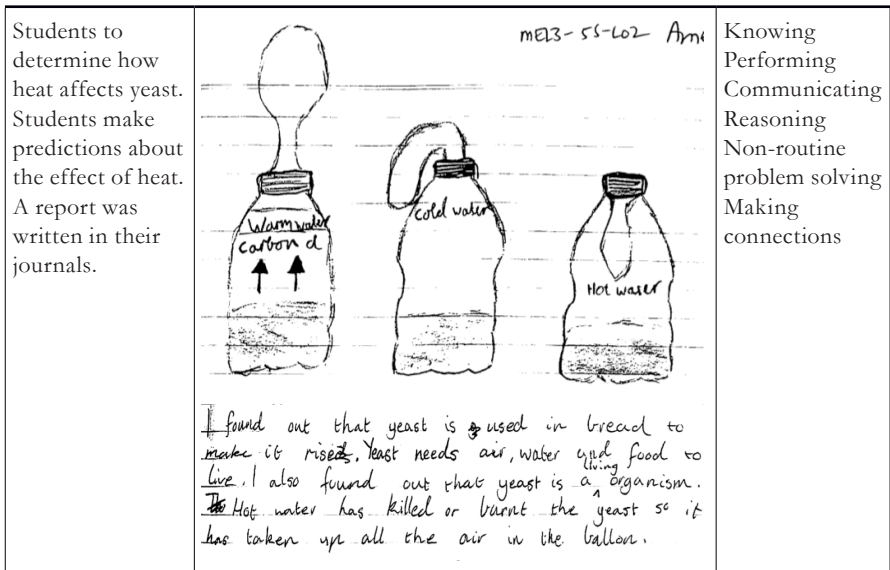 Students to
determine how
heat affects yeast.
Students make
predictions about
the effect of heat.
A report was
written in their
journals.
ME13-S5-L02 Ame
Warm water
carbon d
Cold water
Hot water
I found out that yeast is used in bread to
make it rise. Yeast needs air, water and food to
live. I also found out that yeast is a living organism.
Hot water has killed or burnt the yeast so it
has taken up all the air in the ballon.
Knowing
Performing
Communicating
Reasoning
Non-routine
problem solving
Making
connections